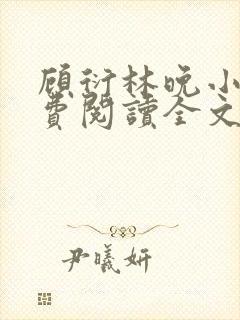 顾衍林晚小
費閱讀全文
尹曦妍